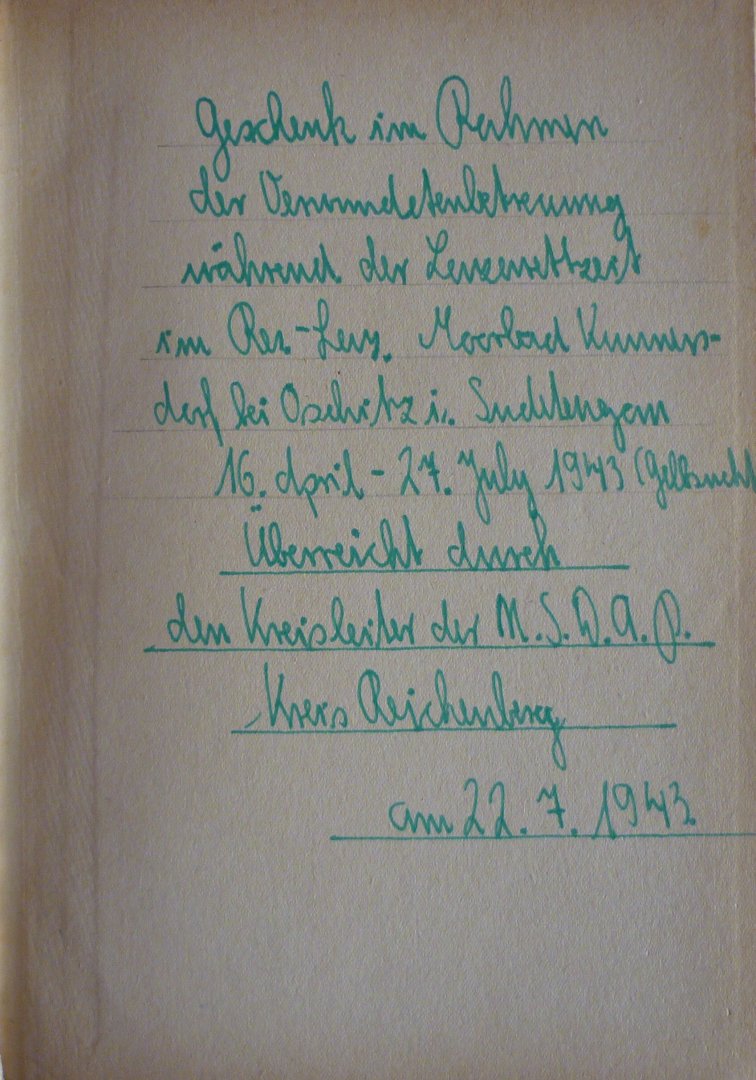 Geschenk im Rahmen
der Verwundetenbetreuung
während der Lazarettzeit
im Res.-Laz. Moorbad Kunners-
dorf bei Oschitz i. Sudetengau
16. April - 27. July 1943 (Gelbsucht
Überreicht durch
den Kreisleiter der N.S.D.A.P.
Kreis Reichenberg
am 22. 7. 1943.